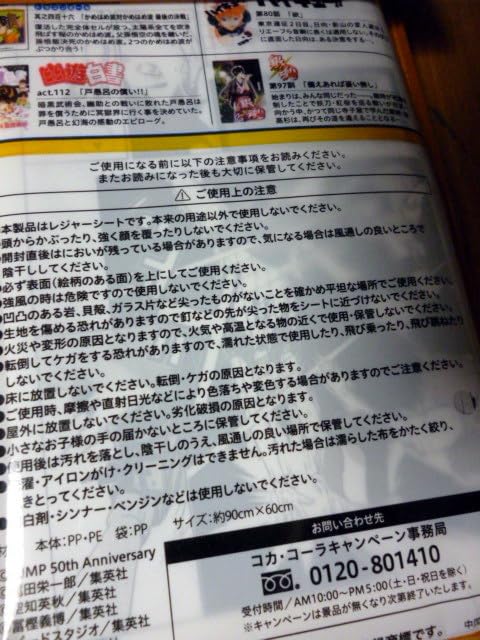 其之四百十六「かめはめ波対かめはめ波 最後の決戦」
第80話「欲」
act.112「戸愚呂の償い!!」
暗黒武術会、幽助との戦いに敗れた戸愚呂は
罪を償うために冥獄界に行く事を決めていた。
戸愚呂と幻海の感動のエピローグ。
第97訓「備えあれば憂い無し」
ご使用になる前に以下の注意事項をお読みください。
またお読みになった後も大切に保管してください。
⚠ ご使用上の注意
本製品はレジャーシートです。本来の用途以外で使用しないでください。
頭からかぶったり、強く顔を覆ったりしないでください。
開封直後はにおいが残っている場合がありますので、気になる場合は風通しの良いところで
陰干ししてください。
●必ず表面(絵柄のある面)を上にしてご使用ください。
●強風の時は危険ですので使用しないでください。
●凹凸のある岩、貝殻、ガラス片など尖ったものがないことを確かめ平坦な場所でご使用ください。
●生地を傷める恐れがありますので釘などの先が尖った物をシートに近づけないでください。
●火災や変形の原因となりますので、火気や高温となる物の近くで使用・保管しないでください。
●転倒してケガをする恐れがありますので、濡れた状態で使用したり、飛び乗ったり、飛び跳ねたり
しないでください。
●床に放置しないでください。転倒・ケガの原因となります。
●ご使用時、摩擦や直射日光などにより色落ちや変色する場合がありますのでご注意ください。
●屋外に放置しないでください。劣化破損の原因となります。
●小さなお子様の手の届かないところに保管してください。
使用後は汚れを落とし、陰干しのうえ、風通しの良い場所で保管してください。
濯・アイロンがけ・クリーニングはできません。汚れた場合は濡らした布をかたく絞り、
きとってください。
白剤・シンナー・ベンジンなどは使用しないでください。
本体:PP・PE 袋:PP サイズ:約90cm×60cm
UMP 50th Anniversary
田栄一郎/集英社
知英秋/集英社
冨樫義博/集英社
ードスタジオ/集英社
お問い合わせ先
コカ・コーラキャンペーン事務局
0120-801410
受付時間/AM10:00〜PM5:00(土・日・祝日を除く)
※キャンペーンは景品が無くなり次第終了いたします。